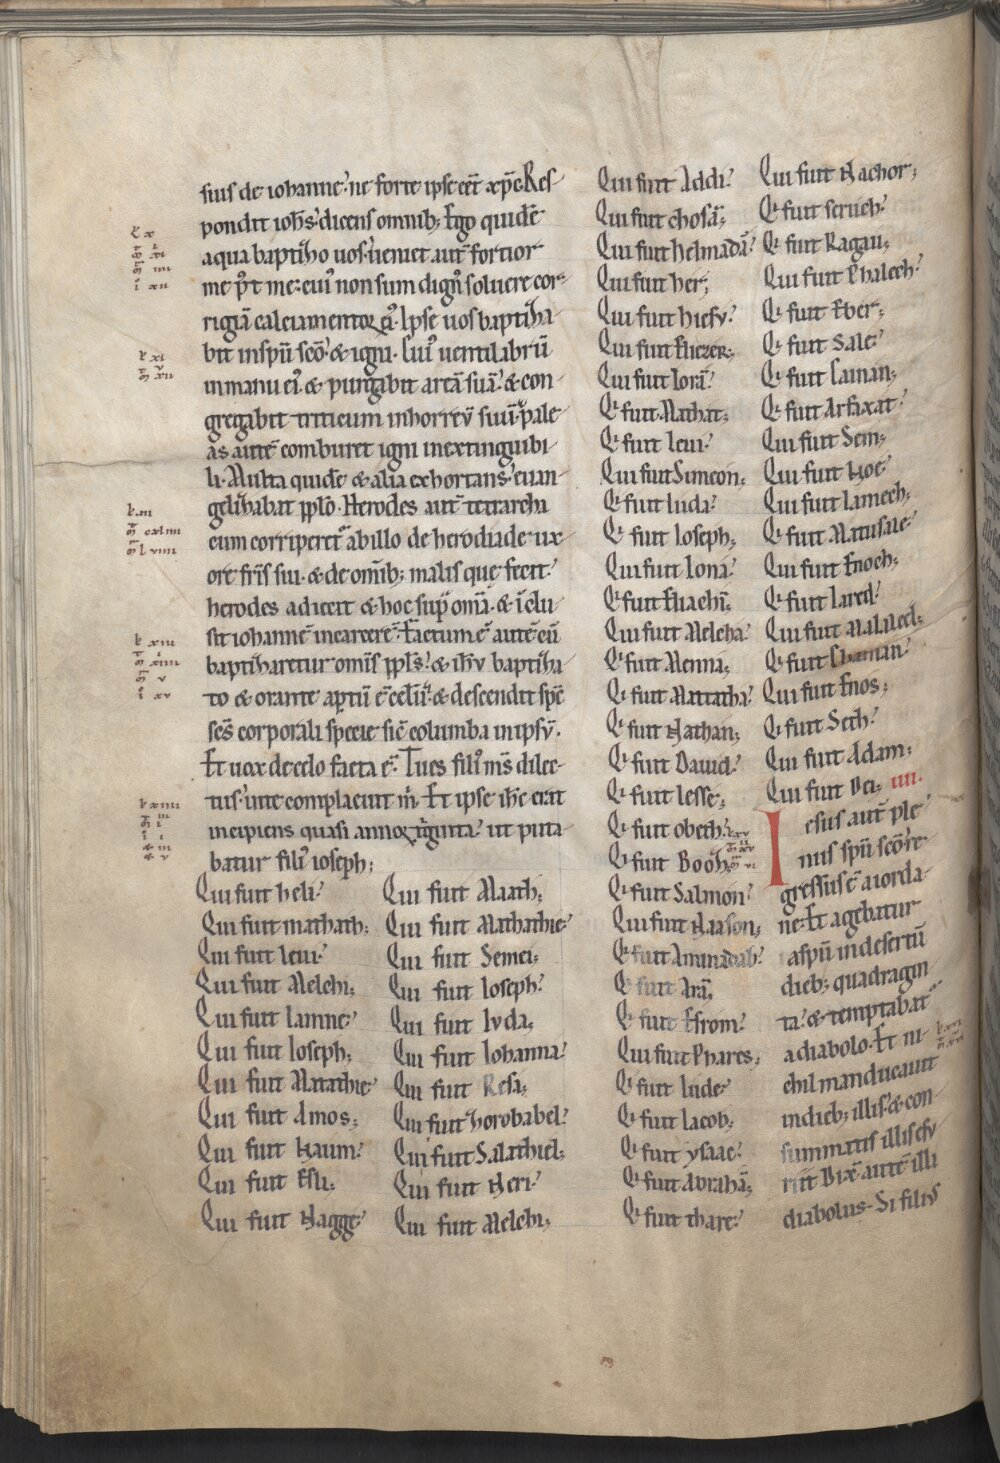 sius de iohanne. ne forte ipse eēt xp̄c. Res
pondit ioh̄s. dicens omnib; Ego quidē
aqua baptizo uos. ueniet aut̄ fortior
me p̄t me. cui' non sum dign' soluere cor
rigiā calciamentoꝝ ei'. Ipse uos baptiza
bit in sp̄u sc̄o. & igni. Cui' uentilabrū
in manu ei' & purgabit areā suā. & con
gregabit triticum in horreū suū. pale
as autē comburet igni inextinguibi
li. Multa quidē & alia exhortans. euan
gelizabat pplo. Herodes aut̄ tetrarcha
cum corriperet̄ ab illo de herodiade ux
ore fr̄is sui. & de omīb; malis que fecit.
herodes adiecit & hoc sup̄ om̄a. & īclu
sit iohannē in carcere. Factum ē autē cū
baptizaretur om̄is ppl̄s. & ih̄u baptiza
to & orante aptū ē cęlū. & descendit sp̄c
sc̄s corporali specie sic̄ columba in ipsū.
Et uox de celo facta ē. Tu es fili' m̄s dilec
tus. in te complacuit m̄. Et ipse ih̄c erat
incipiens quasi annoꝝ t̄ginta. ut puta
batur fili' ioseph;
Qui fuit heli.
Qui fuit mathath;
Qui fuit leui.
Qui fuit Melchi;
Qui fuit Iamne.
Qui fuit Ioseph;
Qui fuit Matathie.
Qui fuit Amos;
Qui fuit Naum.
Qui fuit Esli;
Qui fuit Nagge.
Qui fuit Maath;
Qui fuit Mathathie.
Qui fuit Semei;
Qui fuit Ioseph.
Qui fuit Iuda;
Qui fuit Iohanna.
Qui fuit Resa;
Qui fuit zorobabel.
Qui fuit Salathiel;
Qui fuit Neri.
Qui fuit Melchi;
Qui fuit Addi.
Qui fuit chosā.
Qui fuit helmadā.
Qui fuit her;
Qui fuit hiesu.
Qui fuit Eliezer;
Qui fuit Iorā.
Qi fuit Mathat;
Qi fuit leui.
Qui fuit Simeon;
Qi fuit Iuda.
Qi fuit Ioseph;
Qui fuit Iona.
Qi fuit Eliachī;
Qui fuit Melcha.
Qi fuit Menna;
Qi fuit Mattatha.
Qi fuit Nathan;
Qi fuit Dauid.
Qi fuit Iesse;
Qi fuit obeth.
Qi fuit Booz;
Qi fuit Salmon.
Qui fuit Naason;
Qi fuit Aminadab.
Qi fuit Arā;
Qi fuit Esrom.
Qui fuit Phares;
Qi fuit Iude.
Qi fuit Iacob;
Qi fuit ysaac.
Qi fuit Abrahā;
Qi fuit thare.
Qui fuit Nachor;
Qi fuit seruch.
Qi fuit Ragau;
Qui fuit Phalech.
Qi fuit Eber;
Qi fuit Sale.
Qi fuit Cainan;
Qi fuit Arfaxat.
Qui fuit Sem;
Qui fuit Noe.
Qui fuit Lamech;
Qi fuit Matusale.
Qui fuit Enoch;
Qi fuit Iared.
Qui fuit Malaleel;
Qi fuit Chainan.
Qui fuit Enos;
Qi fuit Seth.
Qui fuit Adam;
Qui fuit Dei; IIII.
Iesus aut̄ ple
nus sp̄u sc̄o. re
gressus ē a iorda
ne. Et agebatur
a sp̄u in desertū
dieb; quadragin
ta. & temptabat̄
a diabolo. Et ni
chil manducauit
in dieb; illis. & con
summatis illis esu
riit. Dix̄ autē illi
diabolus. Si filius